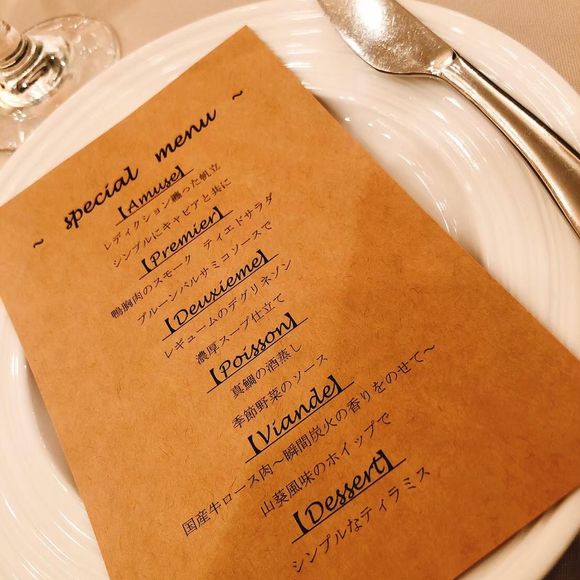 ~ special menu ~
【Amuse】
レディクション纏った帆立
シンプルにキャビアと共に
【Premier】
鴨胸肉のスモーク ティエドサラダ
プルーンバルサミコソースで
【Deuxieme】
レギュームのデグリネゾン
濃厚スープ仕立て
【Poisson】
真鯛の酒蒸し
季節野菜のソース
【Viande】
国産牛ロース肉～瞬間炭火の香りをのせて～
山葵風味のホイップで
【Dessert】
シンプルなティラミス